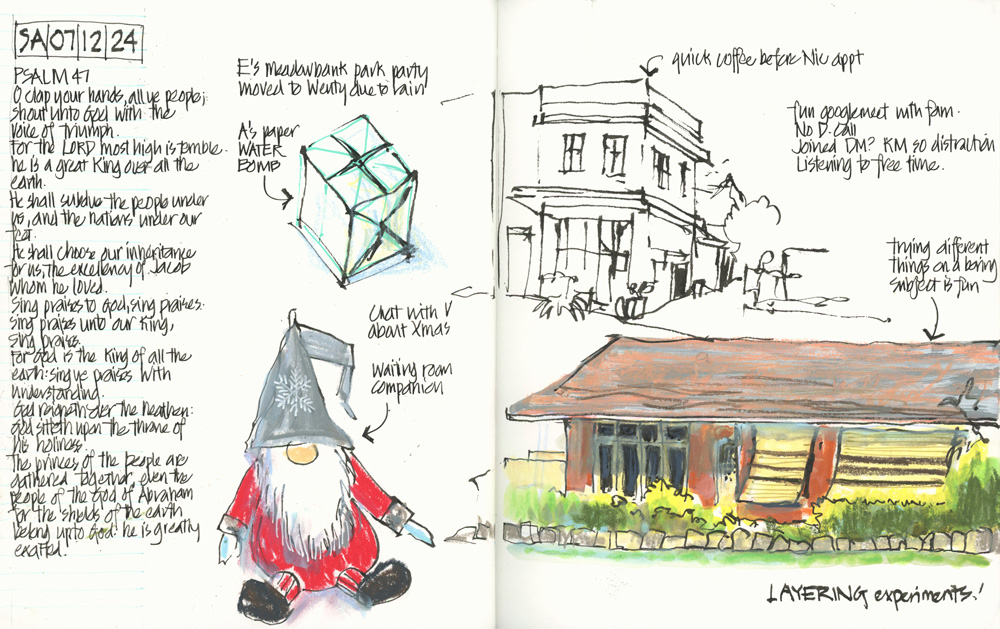 SA 07 12 24
PSALM 47
O clap your hands, all ye people;
shout unto God with the
voice of triumph.
For the LORD most high is terrible.
he is a great King over all the
earth.
He shall subdue the people under
us, and the nations under our
feet.
He shall choose our inheritance
for us, the excellency of Jacob
whom he loved.
Sing praises to God, sing praises:
sing praises unto our King,
sing praises.
For God is the King of all the
earth: sing ye praises with
understanding.
God reigneth over the heathen:
God sitteth upon the throne of
his holiness.
The princes of the people are
gathered together, even the
people of the God of Abraham
for the shields of the earth
belong unto God: he is greatly
exalted.
E's meadowbank park party
moved to Wenty due to rain
A's paper
WATER
BOMB
Chat with V
about Xmas
Waiting room
companion
quick coffee before Nic appt
fun googlemeet with fam.
No D. Call
Joined DM? KM so distraction
Listening to free time.
trying different
things on a boring
subject is fun
LAYERING experiments!